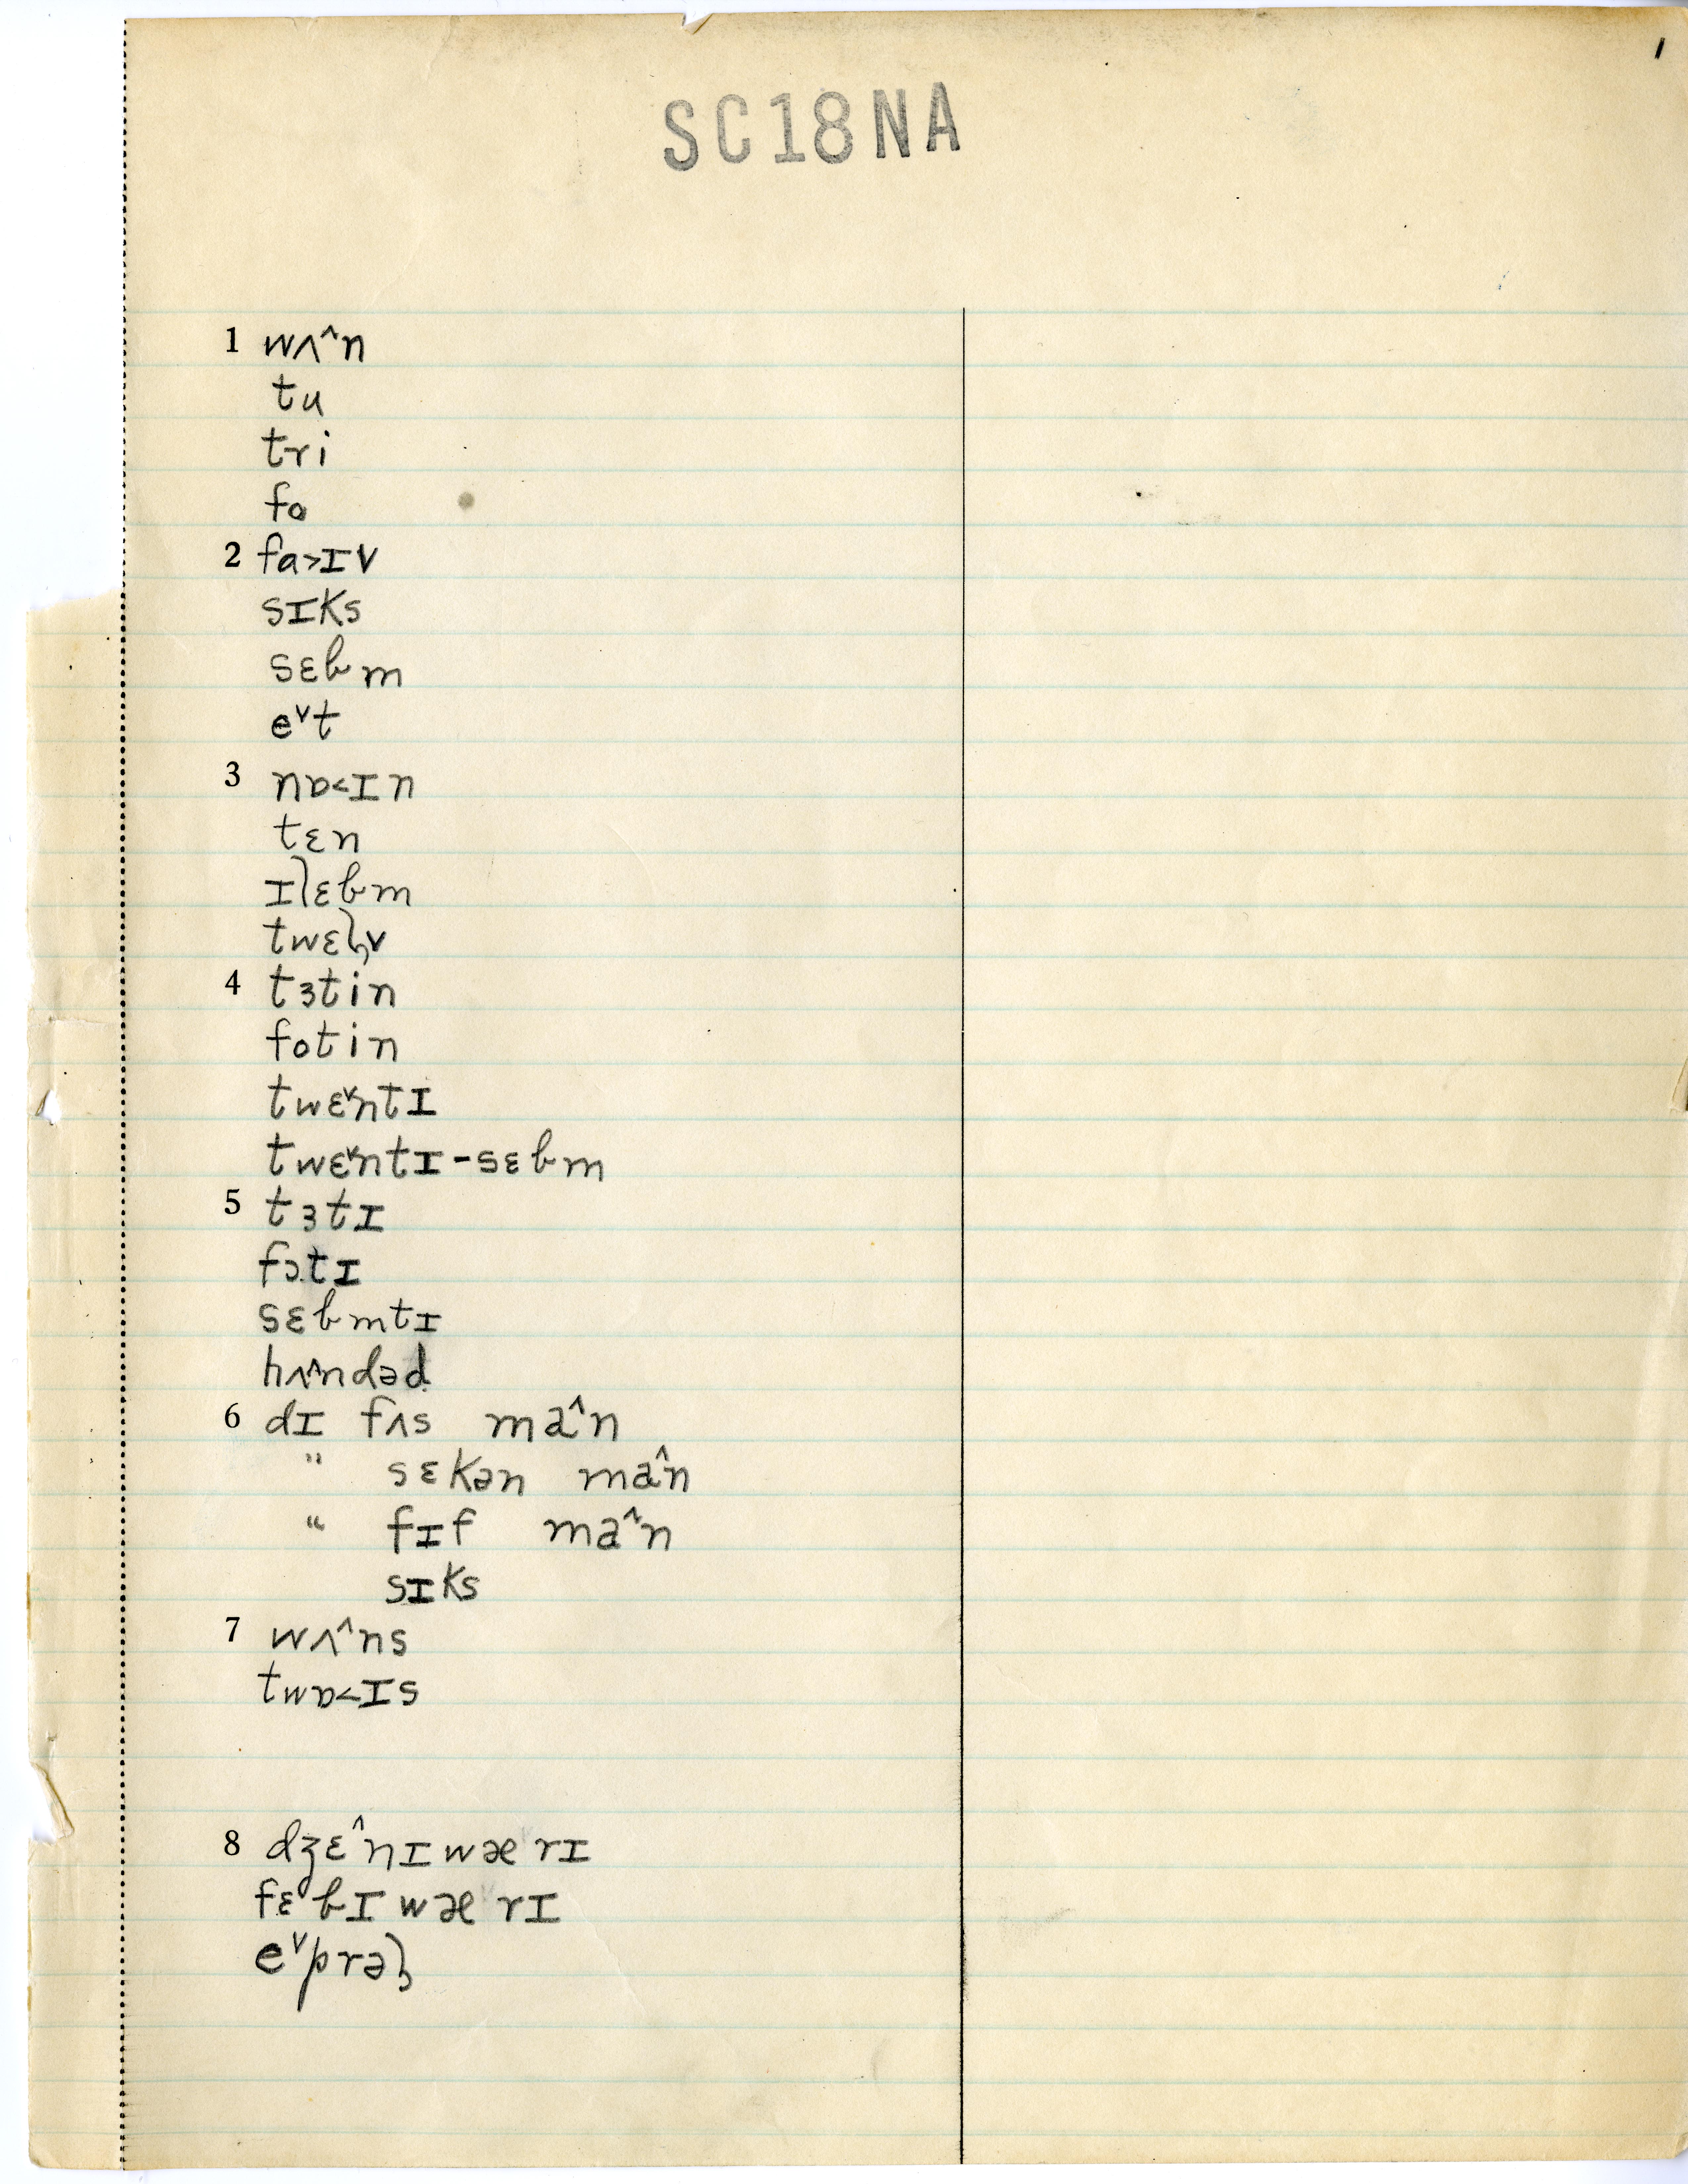 1
SC18NA
1 wʌ^n
tu
tri
fo
2 fa>ɪv
sɪks
sɛbm
e˅t
3 nɒ<ɪn
tɛn
ɪlɛbm
twɛɫv
4 tɜtin
fotin
twɛ˅ntɪ
twɛ˅ntɪ-sɛbm
5 tɜtɪ
fɔtɪ
sɛbmtɪ
hʌ^ndəd
6 dɪ fʌs ma^n
" sɛkən ma^n
" fɪf ma^n
sɪks
7 wʌ^ns
twɒ<ɪs
8 dʒɛ^nɪwærɪ
fɛbɪwærɪ
e˅prəɫ